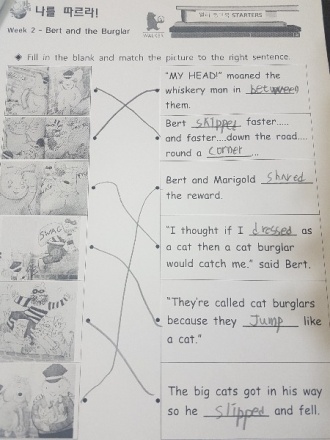 나를 따르라!
STARTERS
Week 2 - Bert and the Burglar
Fill in the blank and match the picture to the right sentence.
"MY HEAD!" moaned the
whiskery man in between
them.
Bert skipped faster.....
and faster....down the road....
round a corner...
Bert and Marigold shared
the reward.
SWAG
"I thought if I dressed as
a cat then a cat burglar
would catch me." said Bert.
"They're called cat burglars
because they Jump like
a cat."
The big cats got in his way
so he slipped and fell.